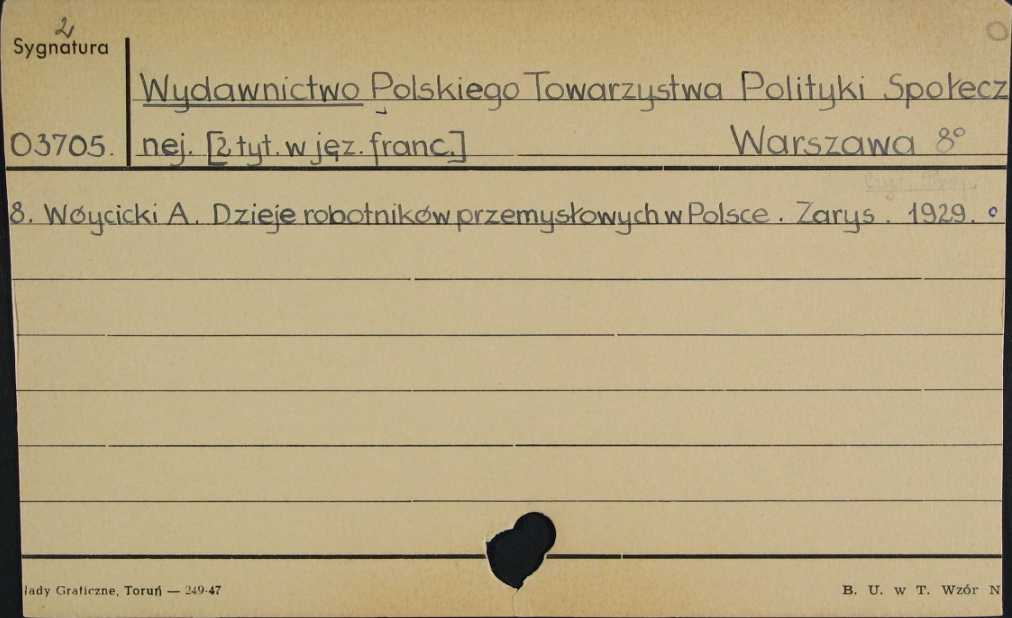 2
Sygnatura
Wydawnictwo Polskiego Towarzystwa Polityki Społecz
03705. nej. [2 tyt. w jęz. franc.] Warszawa 8°
8. Wóycicki A. Dzieje robotników przemysłowych w Polsce. Zarys. 1929.
łady Graficzne, Toruń — 249-47 B. U. w T. Wzór N